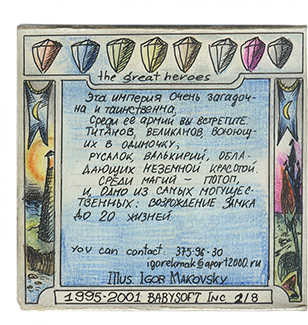 the great heroes
Эта империя очень загадоч-
на и таинственна,
Среди её армии вы встретите:
титанов, великанов, воюющ-
их в одиночку;
русалок, валькирий, обла-
дающих неземной красотой.
Среди магий - потоп,
и одно из самых могущес-
твенных: возрождение замка
до 20 жизней
you can contact: 375-96-30
igorekmak@aport2000.ru
Illus. Igor Makovsky
1995-2001 BABYSOFT Inc. 2/8